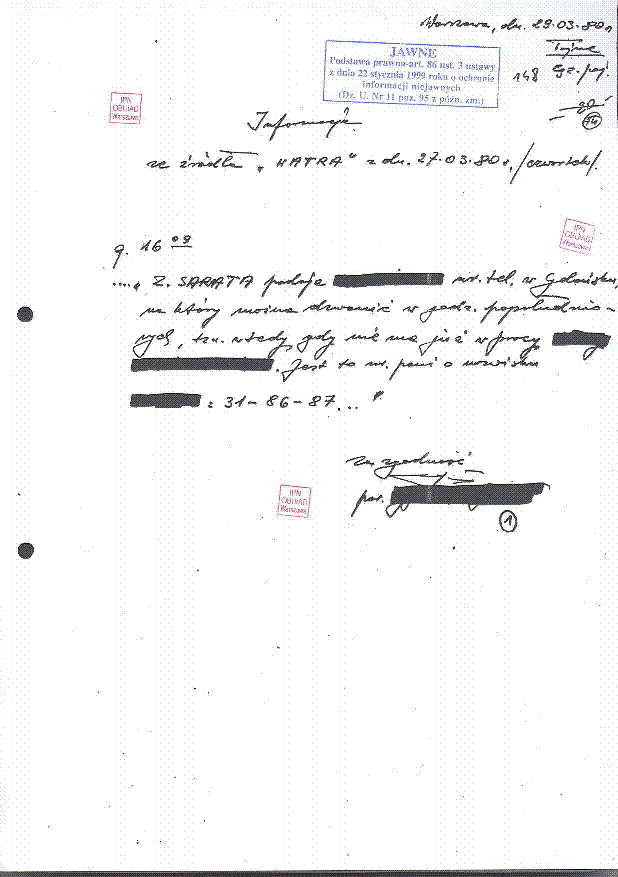 Warszawa, dn. 29.03.80r
Tajne
148 Egz. poj.
JAWNE
Podstawa prawna-art. 86 ust. 3 ustawy
z dnia 22 stycznia 1999 roku o ochronie
informacji niejawnych
(Dz. U. Nr 11 poz. 95 z późn. zm.)
IPN
OBUiAD
Warszawa
74
Informacja
ze źródła „HATRA" z dn. 27.03.80r. /czwartek/.
IPN
OBUiAD
Warszawa
g. 16 09
...." Z. SARATA podaje nr. tel. w Gdańsku,
na który można dzwonić w godz. popołudnio-
wych, tzn. wtedy, gdy nie ma już w pracy
. Jest to nr. pani o nazwisku
: 31-86-87... "
Za zgodność
IPN
OBUiAD
Warszawa
por.
1